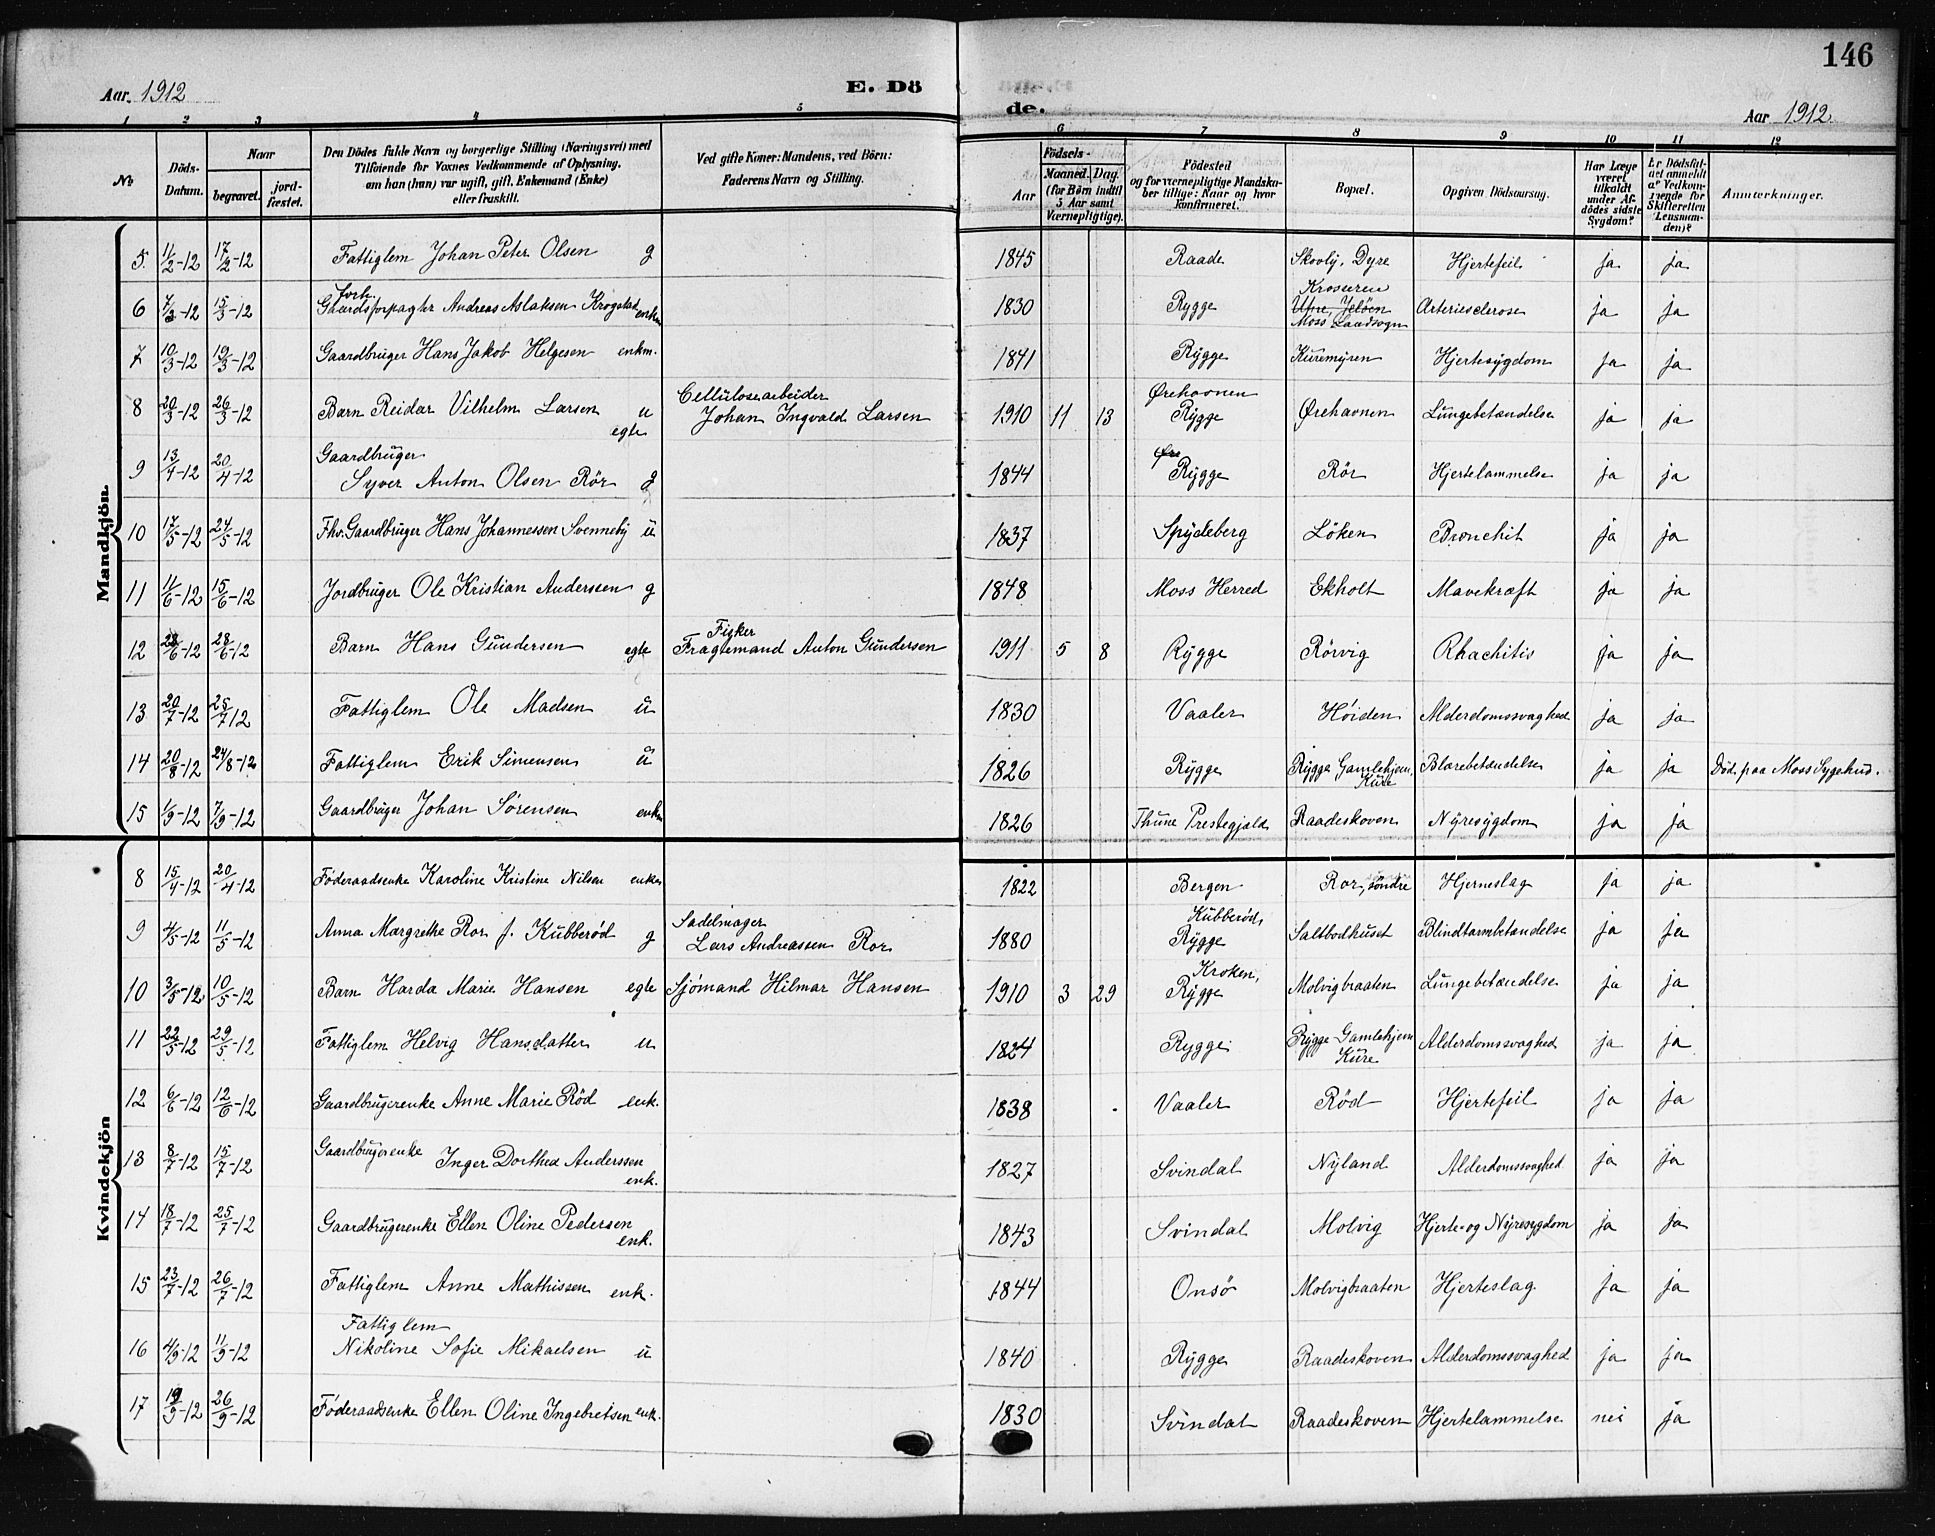 146
Aar 1912
E. Dö
de.
Aar 1912.
1 2 3 4 5 6 7 8 9 10 11 12
No
Döds-Datum.
Naar
begravet.
jord-fæstet.
Den Dödes fulde Navn og borgerlige Stilling (Næringsvei) med Tilföiende for Voxnes Vedkommende af Oplysning, om han (hun) var ugift, gift, Enkemand (Enke) eller fraskilt.
Ved gifte Koner: Mandens, ved Börn: Faderens Navn og Stilling.
Födsels-
Aar
Maaned. Dag.
(for Börn indtil 5 Aar samt Værnepligtige).
Födested og for værnepligtige Mandskaber tillige: Naar og hvor konfirmeret.
Bopæl.
Opgiven Dödsaarsag.
Har Læge været tilkaldt under Afdödes sidste Sygdom?
Er Dödsfaldet anmeldt af Vedkommende for Skifteretten (Lensmanden)?
Anmærkninger.
Mandkjön.
5. 11/2-12 17/2-12 Fattiglem Johan Peter Olsen g 1845 Raade Skovly, Dyre Hjertefeil ja ja
6 7/3-12 15/3-12 forh. Gaardsforpagter Andreas Aslaksen Krogstad enkm 1830 Rygge Kroseren Ufne, Jeløen Moss Landsogn Arteriesclerose ja ja
7 10/3-12 19/3-12 Gaardbruger Hans Jakob Helgesen enkm. 1841 Rygge Kuremyren Hjertesygdom ja ja
8 20/3-12 26/3-12 Barn Reidar Vilhelm Larsen u egte Cellulosearbeider Johan Ingvald Larsen 1910 11 13 Ørehavnen Rygge Ørehavnen Lungebetændelse ja ja
9 13/4-12 20/4-12 Gaardbruger Syver Anton Olsen Rör g 1844 Øre Rygge Rör Hjertelammelse ja ja
10 17/5-12 24/5-12 Fhv. Gaardbruger Hans Johannessen Svenneby u 1837 Spydeberg Löken Bronchit ja ja
11 11/6-12 15/6-12 Jordbruger Ole Kristian Anderssen g 1848 Moss Herred Ekholt Mavekræft ja ja
12 23/6-12 28/6-12 Barn Hans Gundersen egte Fisker Fragtemand Anton Gundersen 1911 5 8 Rygge Rörvig Rhachitis ja ja
13 20/7-12 25/7 12 Fattiglem Ole Madsen u 1830 Vaaler Höiden Alderdomssvaghed ja ja
14 20/8-12 24/8-12 Fattiglem Erik Simensen u 1826 Rygge Rygge Gamlehjem, Kure Blærebetændelse ja ja Död paa Moss Sygehus.
15 1/9-12 7/9-12 Gaardbruger Johan Sørensen enkm 1826 Thune Prestegjæld Raadeskoven Nyresygdom ja ja
Kvindekjön
8 15/4-12 20/4-12 Föderaadsenke Karoline Kristine Nilsen enke 1822 Bergen Ror, söndre Hjerneslag ja ja
9 4/5-12 11/5-12 Anna Margrethe Ror f. Kubberød g Sadelmager Lars Andreassen Ror 1880 Kubberød, Rygge Saltbodhuset Blindtarmbetændelse ja ja
10 3/5-12 10/5-12 Barn Harda Marie Hansen egte Sjømand Hilmar Hansen 1910 3 29 Kroken, Rygge Molvigbraaten Lungebetændelse ja ja
11 22/5-12 29/5-12 Fattiglem Helvig Hansdatter u 1824 Rygge Rygge Gamlehjem Kure Alderdomssvaghed ja ja
12 6/6-12 12/6-12 Gaardbrugerenke Anne Marie Röd enk. 1838 Vaaler Röd Hjertefeil ja ja
13 8/7-12 15/7-12 Gaardbrugerenke Inger Dorthea Anderssen enk. 1827 Svindal Nyland Alderdomssvaghed ja ja
14 18/7-12 25/7-12 Gaardbrugerenke Ellen Oline Pedersen enk. 1843 Svindal Molvig Hjerte- og Nyresygdom ja ja
15 23/7-12 26/7-12 Fattiglem Anne Mathissen enk. 1844 Onsö Molvigbraaten Hjerteslag ja ja
16 4/9-12 11/9-12 Fattiglem Nikoline Sofie Mikaelsen u 1840 Rygge Raadeskoven Alderdomssvaghed ja ja
17 19/9-12 26/9-12 Föderaadsenke Ellen Oline Ingebretsen enk. 1830 Svindal Raadeskoven Hjertelammelse nei ja